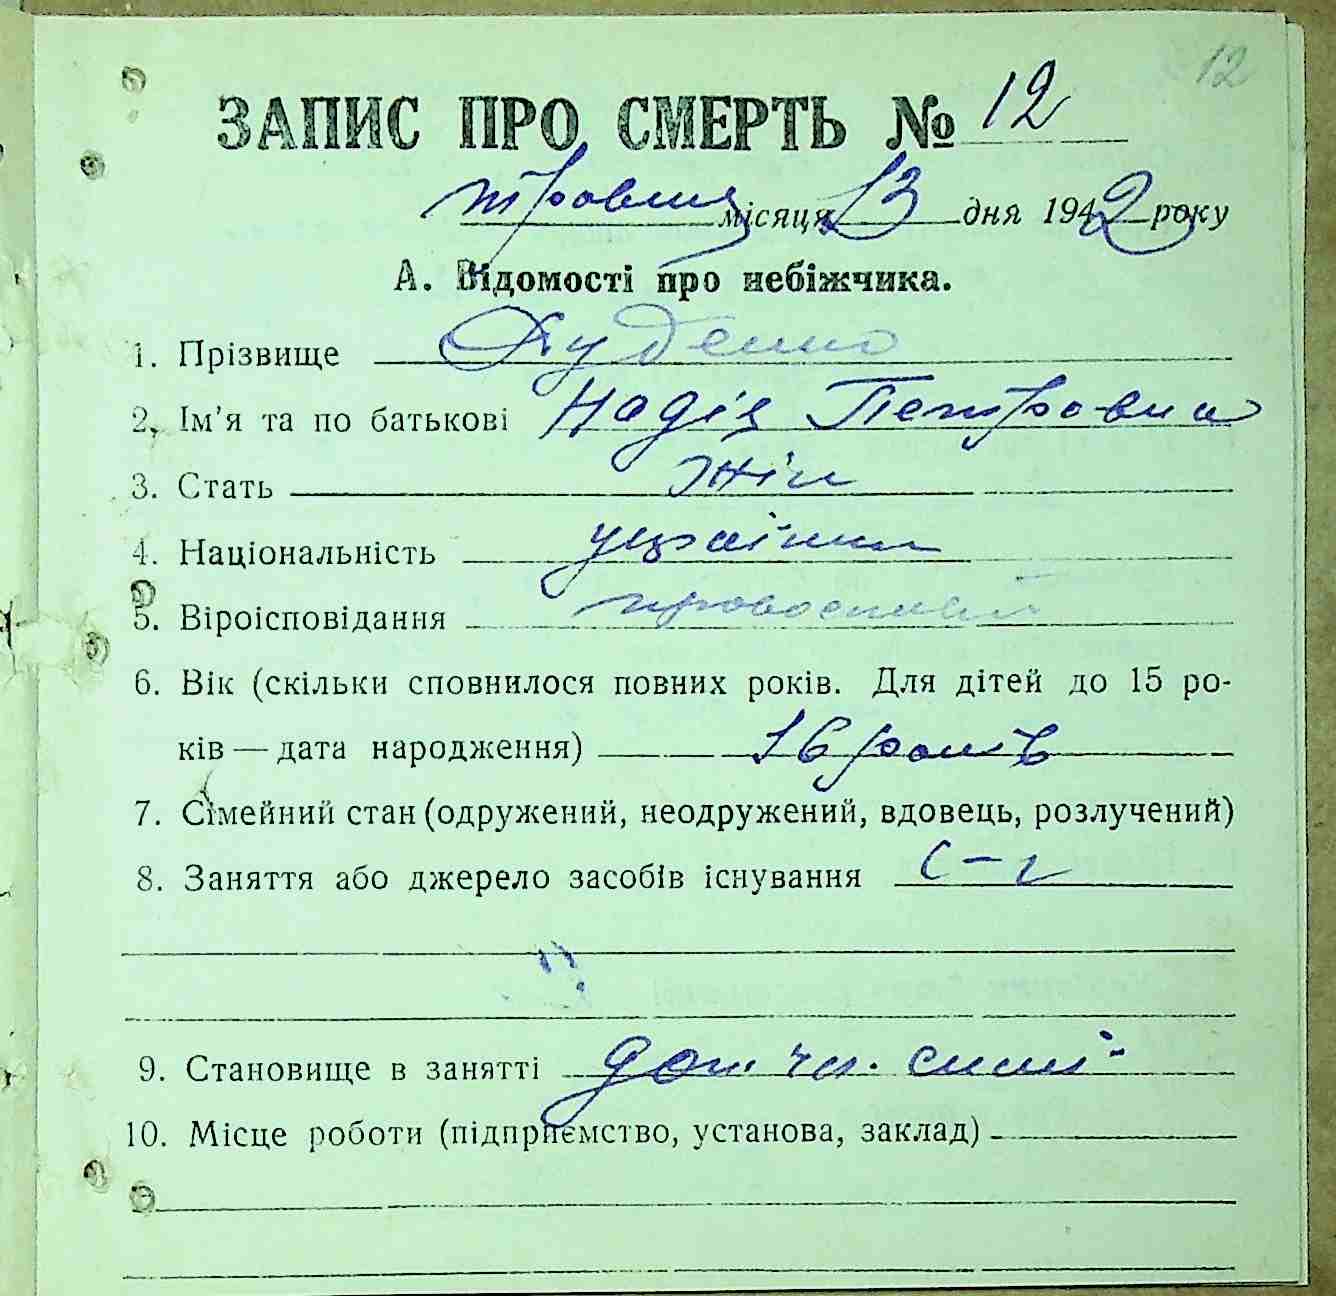 12
ЗАПИС ПРО СМЕРТЬ № 12
травня місяця 13 дня 1942 року
А. Відомості про небіжчика.
1. Прізвище
2. Ім'я та по батькові Надія Петровна
3. Стать Жін
4. Національність українка
5. Віроісповідання
6. Вік (скільки сповнилося повних років. Для дітей до 15 ро-
ків — дата народження) 16 років
7. Сімейний стан (одружений, неодружений, вдовець, розлучений)
8. Заняття або джерело засобів існування С-г
9. Становище в занятті
10. Місце роботи (підприємство, установа, заклад)